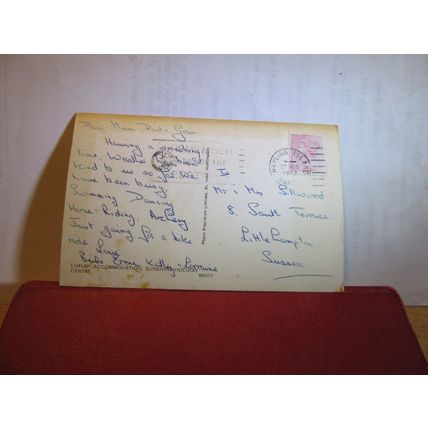 Dear Mum Dad + Gran
Having a
time. Weather has been
kind to us so far. We
have been busy
Swimming Dancing
Horse Riding Archery
Just going for a bike
ride Luv
Bub Ernie Kathy Lorraine
LUXURY ACCOMMODATION, SUNSHINE HOLIDAY
CENTRE
Photo Precision Limited, St. Ives, Huntingdon
HAYLING ISLAND
To
Mr + Mrs Sillwood
8. South Terrace
Littlehampton
Sussex